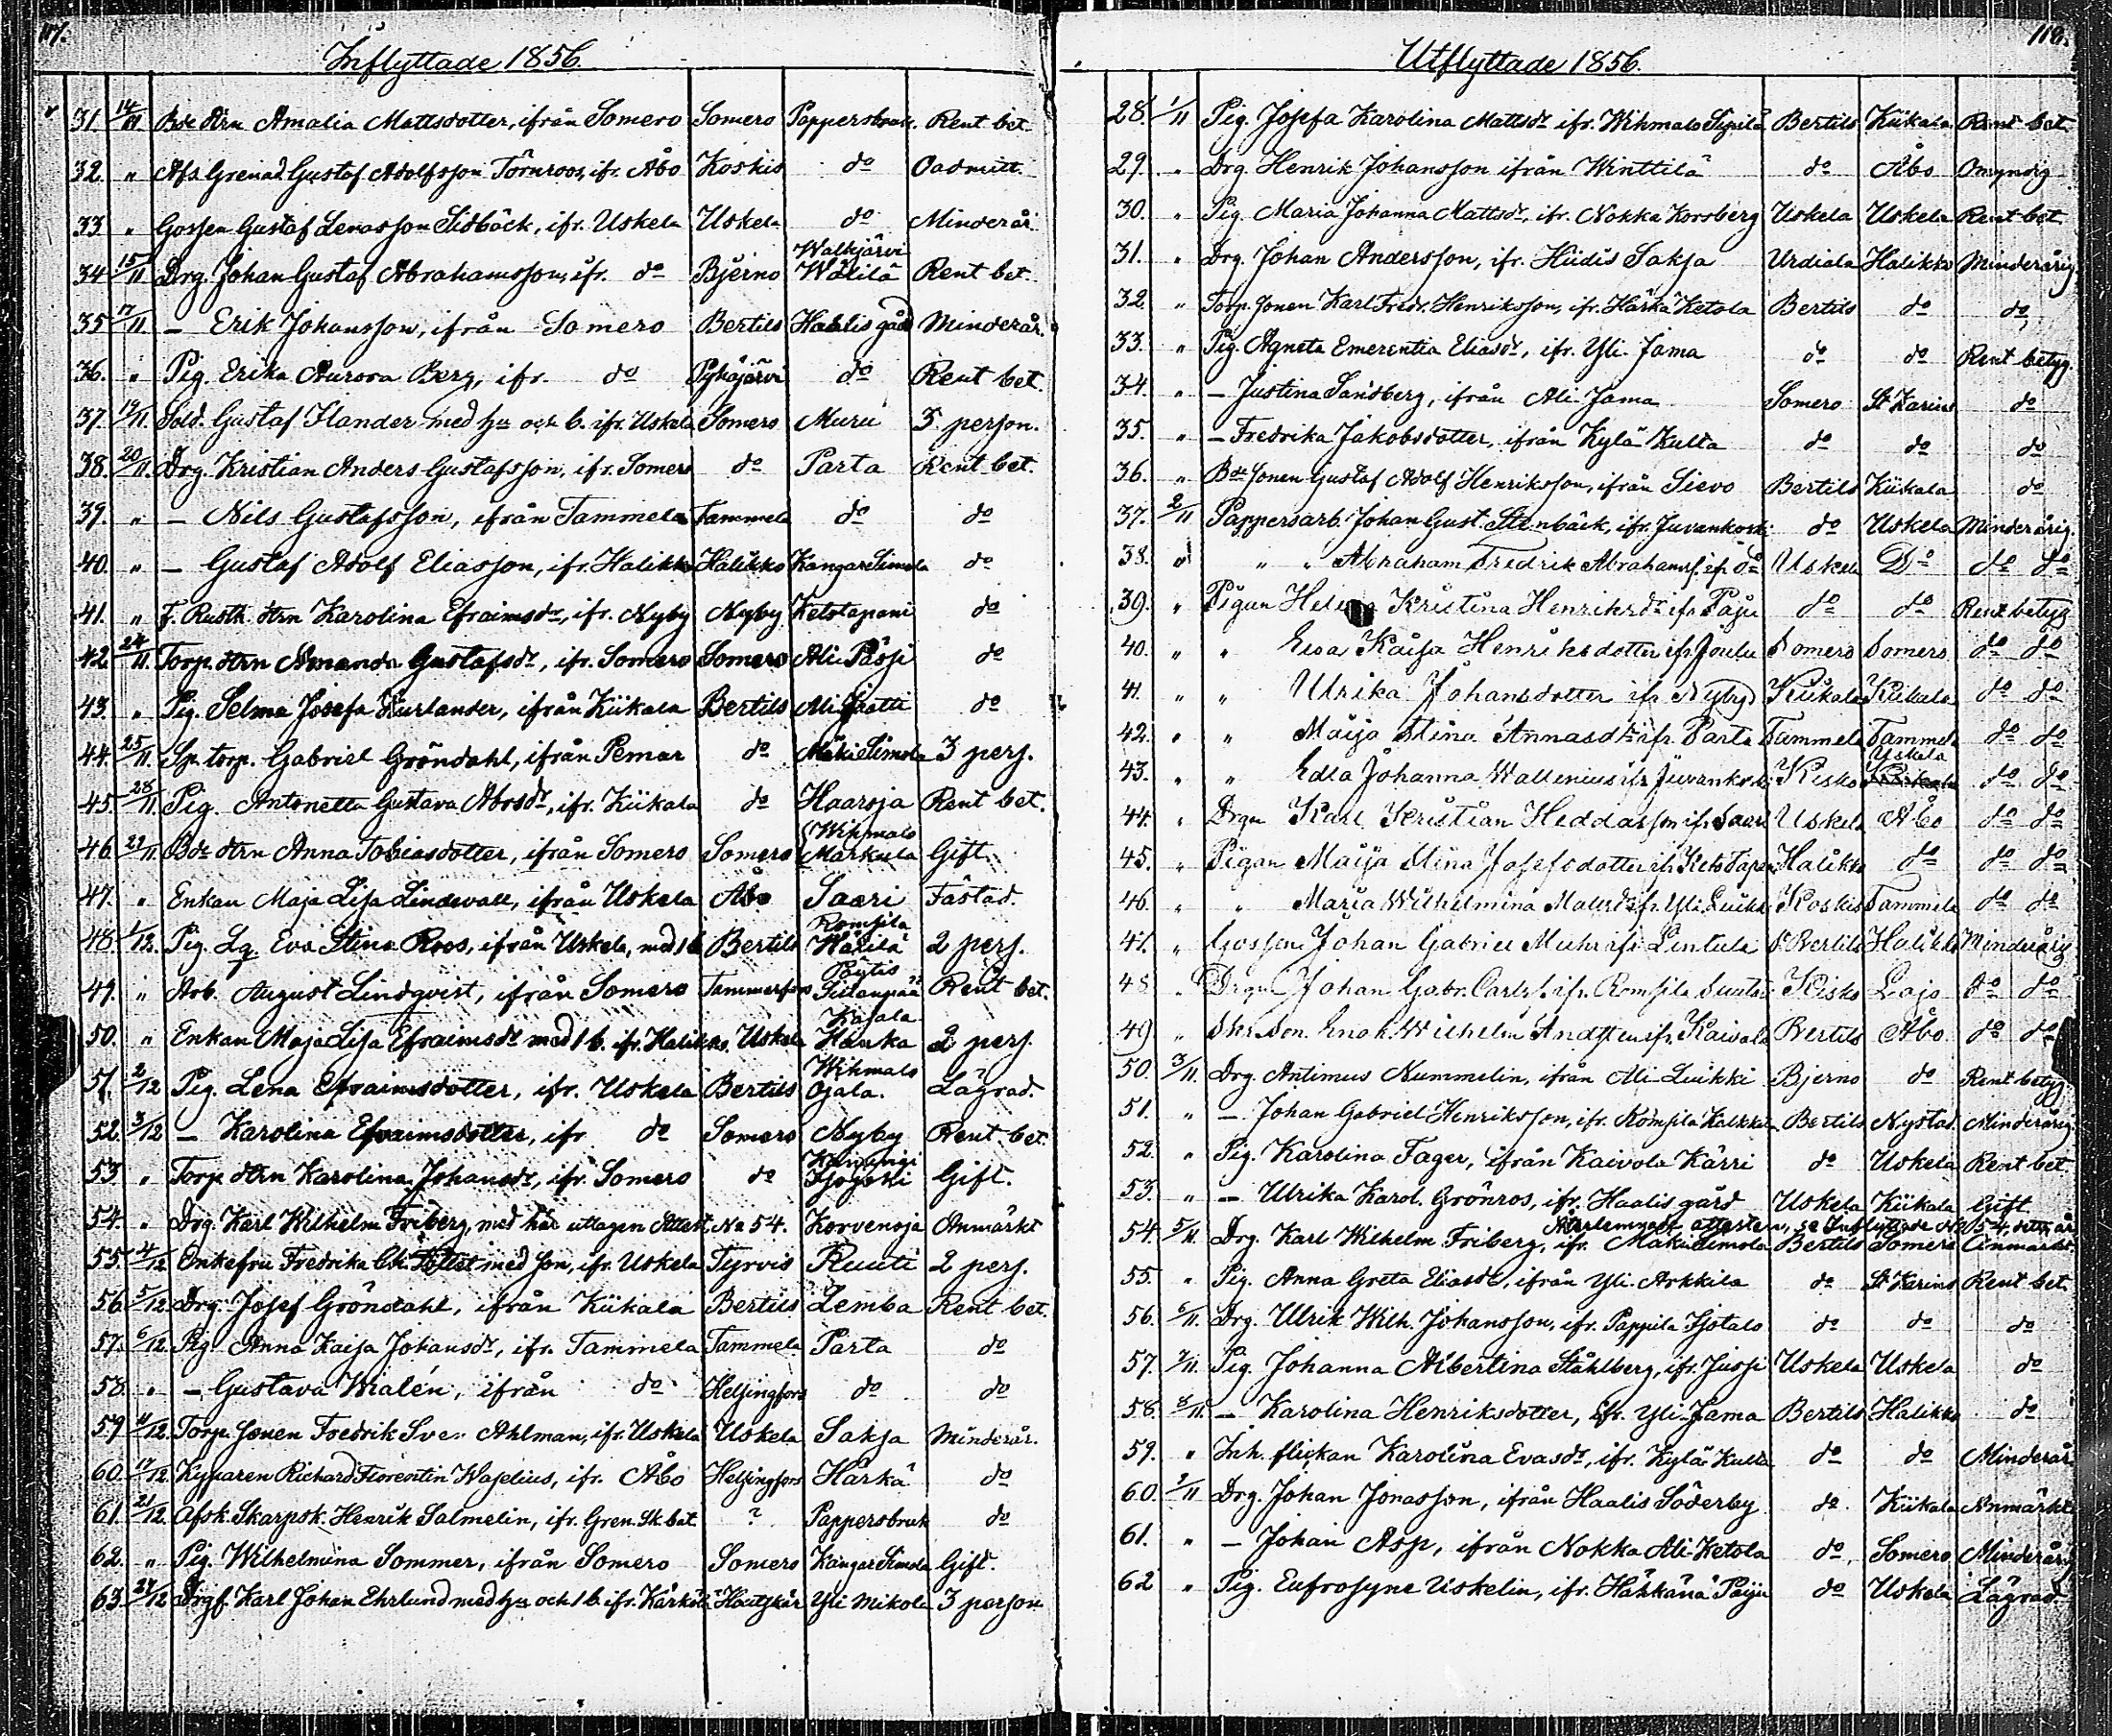 117.
Inflyttade 1856.
31. 14/11 Bde dtrn Amalia Mattsdotter, ifrån Somero Somero Pappersbruk. Rent bet.
32. " Afs. Grenad. Gustaf Adolfsson Törnroos, ifr. Åbo Koskis do Oadmitt.
33 " Gossen Gustaf Lenasson Lidbäck, ifr. Uskela Uskela do Minderår.
Walkjärvi
34 15/11 Drg. Johan Gustaf Abrahamsson, ifr. do Bjerno Wälilä Rent bet.
35 17/11 – Erik Johansson, ifrån Somero Bertils Haalis gård Minderår.
36. " Pig. Erika Aurora Berg, ifr. do Pyhäjärvi do Rent bet.
37. 19/11. Sold. Gustaf Ilander med hu och b. ifr. Uskela Somero Muru 3 person.
38. 20/11. Drg. Kristian Anders Gustafsson, ifr. Somero do Parta Rent bet.
39. " – Nils Gustafsson, ifrån Tammela Tammela do do
40. " – Gustaf Adolf Eliasson, ifr. Halikko Halikko Kangas Simola do
41. " F. Rusth. dtrn Karolina Efraimsdr, ifr. Nyby Nyby Ketotapani do
42. 24/11. Torp. dtrn Amanda Gustafsdr, ifr. Somero Somero Ali Pässi do
43. " Pig. Selma Josefa Kurlander, ifrån Kiikala Bertils Ali do
44. 25/11. Sp. torp. Gabriel Gröndahl, ifrån Pemar do Mäki Simola 3 pers.
45 28/11 Pig. Antonetta Gustava Abrsdr, ifr. Kiikala do Haaroja Rent bet.
Wihmalo
46. 29/11 Bde dtrn Anna Tobiasdotter, ifrån Somero Somero Markula Gift.
47. " Enkan Maja Lisa Lindevall, ifrån Uskela Åbo Saari Fästad.
Romsila
48. 1/12. Pig. Lg Eva Stina Roos, ifrån Uskela, med 1 b Bertils Wälilä 2 pers.
Pöytis
49. " Arb. August Lindqvist, ifrån Somero Tammerfors Rent bet.
Kajala
50. " Enkan Maja Lisa Efraimsdr med 1 b. ifr. Halikko. Uskela Hanka 2 pers.
Wihmalo
51. 2/12 Pig. Lena Efraimsdotter, ifr. Uskela Bertils Ojala. Lägrad.
52. 3/12 – Karolina Efraimsdotter, ifr do Somero Nyby Rent. bet.
53. " Torp. dtrn Karolina Johansdr, ifr. Somero do Gift.
54. " Drg. Karl Wilhelm Friberg, med här uttagen Attest No 54. Korvenoja Anmärkt
55. 4/12 Enkefru Fredrika med son, ifr. Uskela Tyrvis Ruuti 2 pers.
56 5/12 Drg. Josef Gröndahl, ifrån Kiikala Bertils Lemba Rent bet.
57. 6/12. Pig. Anna Kaisa Johansdr, ifr. Tammela Tammela Parta do
58. " – Gustava Wialén, ifrån do Helsingfors do do
59 11/12. Torp. sonen Fredrik Sven Ahlman, ifr. Uskela Uskela Saksa Minderår.
60. 17/12. Kyparen Richard Florentin Wajelius, ifr. Åbo Helsingfors Härkä do
61. 21/12. Afsk. Skarpsk. Henrik Salmelin, ifr. Gren. Sk. bat. ? Pappersbruk do
62. " Pig. Wilhelmina Sommer, ifrån Somero Somero Kangas Simola Gift.
63. 27/12 Drgf. Karl Johan Ehrlund med hu och 1 b. ifr. Kärkölä Houtskär Yli Mikola 3 person
118.
Utflyttade 1856.
28. 1/11 Pig. Josefa Karolina Mattsdr ifr. Wihmalo Sipilä Bertils Kiikala Rent bet.
29. " Drg Henrik Johansson ifrån Winttilä do Åbo Omyndig
30. " Pig. Maria Johanna Mattsdr, ifr. Nokka Korsberg Uskela Uskela Rent bet
31. " Drg. Johan Andersson, ifr. Hiidis Saksa Urdiala Halikko Minderårig
32. " Torp. sonen Karl Fredr. Henriksson, ifr. Härkä Ketola Bertils do do
33. " Pig. Agneta Emerentia Eliasdr, ifr. Yli-Jama do do Rent betyg.
34. " – Justina Sandberg, ifrån Ali-Jama Somero St Karins do
35. " – Fredrika Jakobsdotter, ifrån Kylä Kulta do do do
36. " Bde sonen Gustaf Adolf Henriksson, ifrån Sievo Bertils Kiikala do
37. 2/11 Pappersarb. Johan Gust. Stenbäck, ifr. Juvankoski do Uskela Minderårig.
38. " " " Abraham Fredrik Abrahamss. ifr. do Uskela Do do do
39. " Pigan Helena Kristina Henriksdr ifr Paju do do Rent betyg
40. " " Eva Kaisa Henriksdotter ifr Joulu Somero Somero do do
41. " " Ulrika Johansdotter ifr Nyby Kiikala Kiikala do do
42. " " Maija Stina Annasdr ifr. Parta Tammela Tammela do do
Uskela
43. " " Edla Johanna Wallenius ifr Juvankoski Kisko Kiikala do do
44. " Drgn Karl Kristian Heddasson ifr. Saari Uskela Åbo do do
45. " Pigan Maija Stina Josefsdotter ifr Keto Tapani Halikko do do do
46. " " Maria Wilhelmina Mattsdr ifr. Yli Luikki Koskis Tammela do do
47. " Gossen Johan Gabriel Muhr ifr Lintula St Bertils Halikko Minderårig
48 " Drgn Johan Gabr. Carlss. ifr. Romsila Kisko Lojo do do
49 " Enok Wilhelm ifr. Kaivola Bertils Åbo. do do
50. 3/11. Drg. Antimus Nummelin, ifrån Ali-Luikki Bjerno do Rent betyg.
51. " – Johan Gabriel Henriksson, ifr. Romsila Kalkkila Bertils Nystad. Minderårig
52. " Pig. Karolina Fager, ifrån Kaivola Kärri do Uskela Rent bet.
53. " – Ulrika Karol. Grönros, ifr. Haalis gård Uskela Kiikala Gift.
Återlemnat attesten, se Inflyttade No 54, detta år
54. 5/11. Drg. Karl Wilhelm Friberg, ifr. Mäki Simola Bertils Somero Anmärkt.
55. " Pig. Anna Greta Eliasdr, ifrån Yli-Arkkila do St Karins Rent bet.
56. 6/11. Drg. Ulrik Wilh. Johansson, ifr. Pappila Isotalo do do do
57. 7/11. Pig. Johanna Albertina Ståhlberg, ifr. Jussi Uskela Uskela do
58. 8/11. – Karolina Henriksdotter, ifr. Yli-Jama Bertils Halikko do
59. " Inh. flickan Karolina Evasdr, ifr. Kylä Kulta do do Minderår.
60. 9/11 Drg. Johan Jonasson, ifrån Haalis Söderby do. Kiikala Anmärkt
61. " – Johan Asp, ifrån Nokka Ali-Ketola do Somero Minderårig
62 " Pig. Eufrosyne Uskelin, ifr. Häkkänä Paiju do Uskela Lägrad.